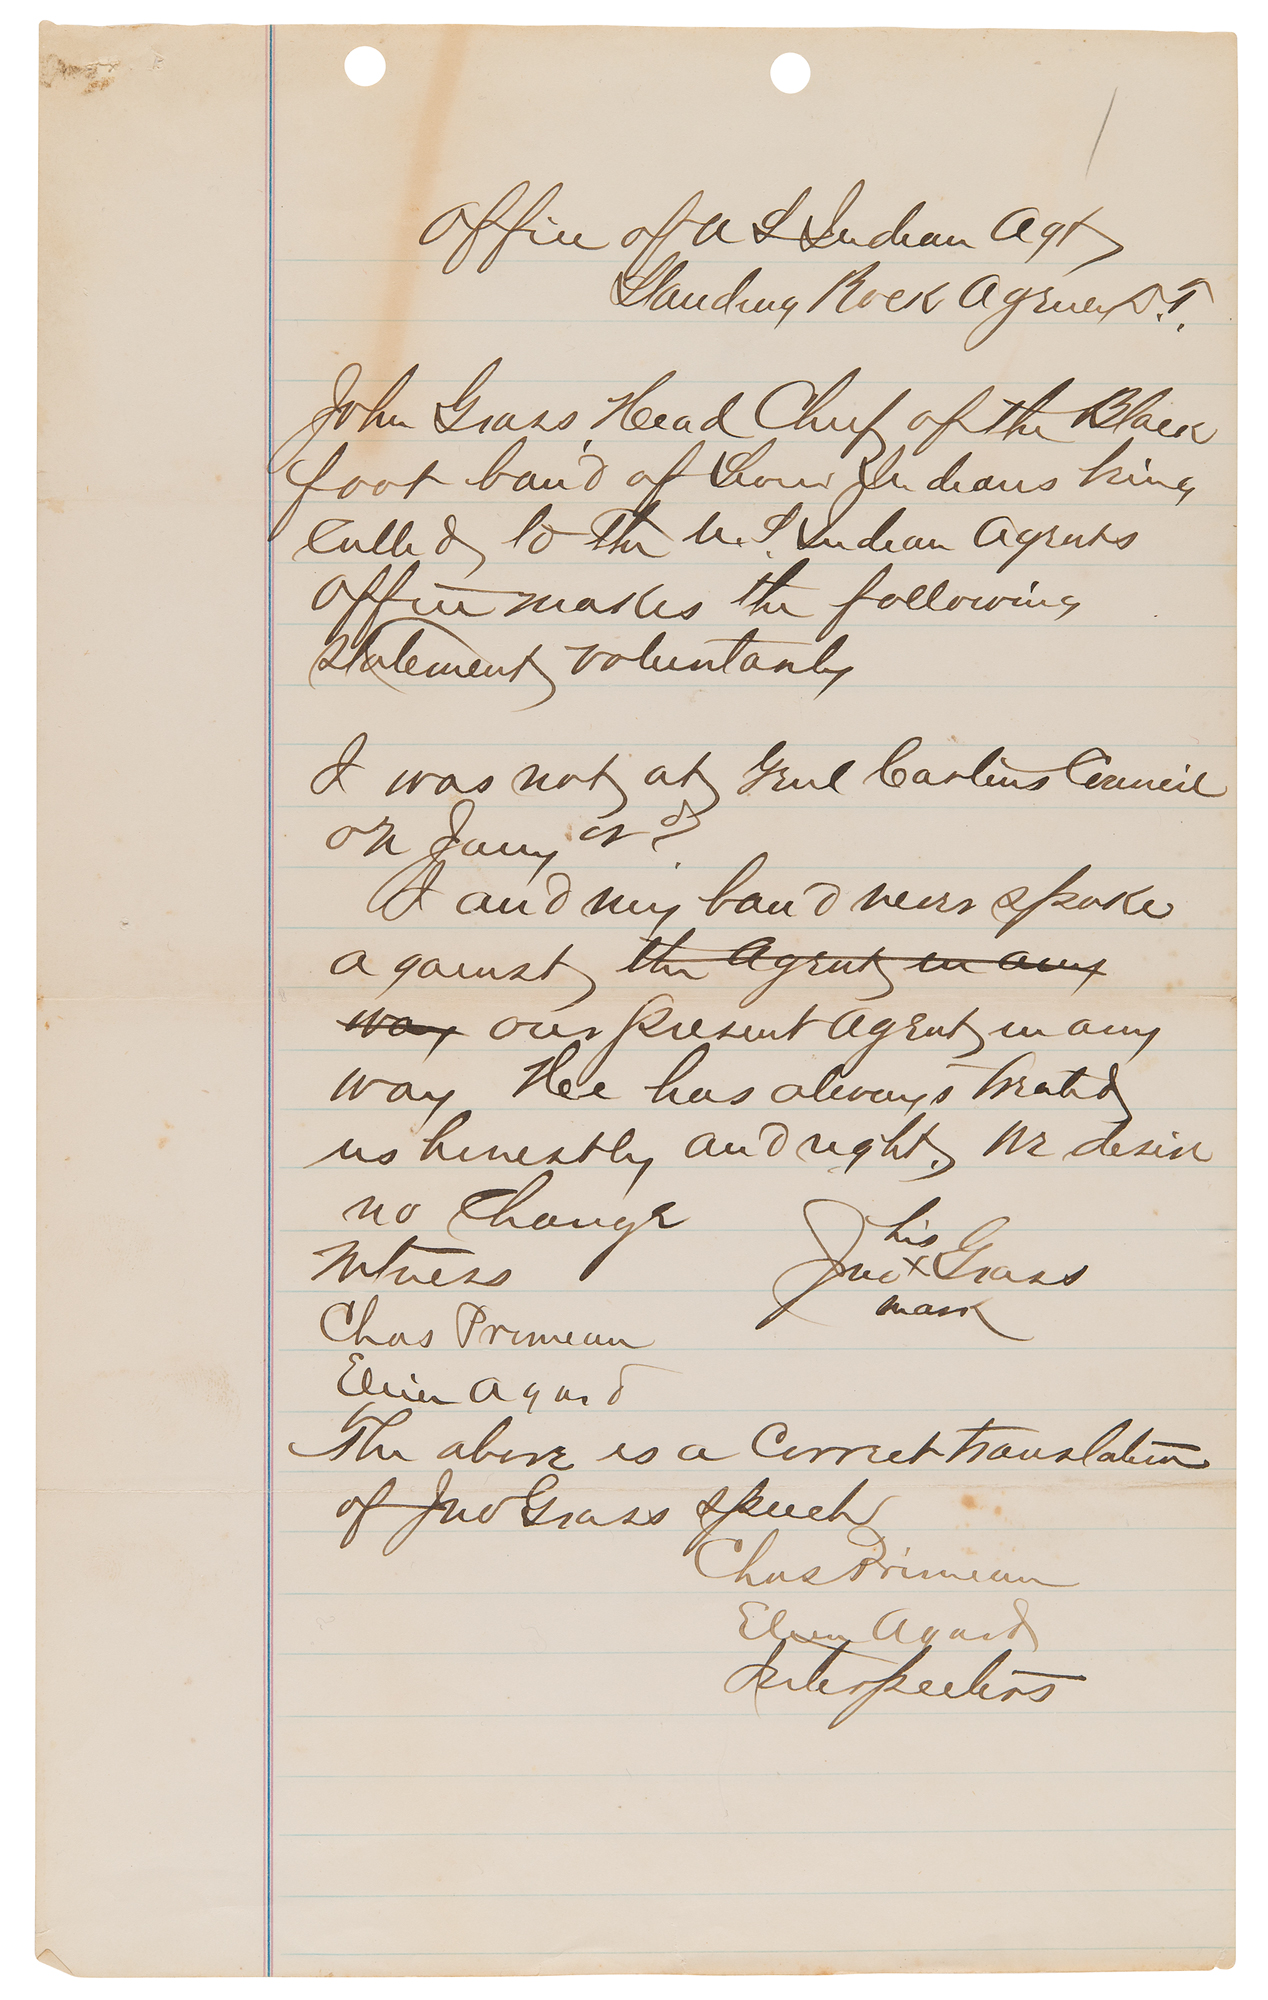 Office of U S Indian Agt
Standing Rock Agency D.T.
John Grass, Head Chief of the Black
foot band of Sioux Indians being
called to the U.S. Indian Agents
Office makes the following
statement voluntarily
I was not at Genl Carlins Council
on Jany
I and my band never spoke
against the Agent in any
way our present Agent in any
way Hee has always treated
us honestly and right. We desire
no change
Witness
his
Jno x Grass
mark
Chas Primeau
Agard
The above is a Correct translation
of Jno Grass speech
Chas Primeau
Agard